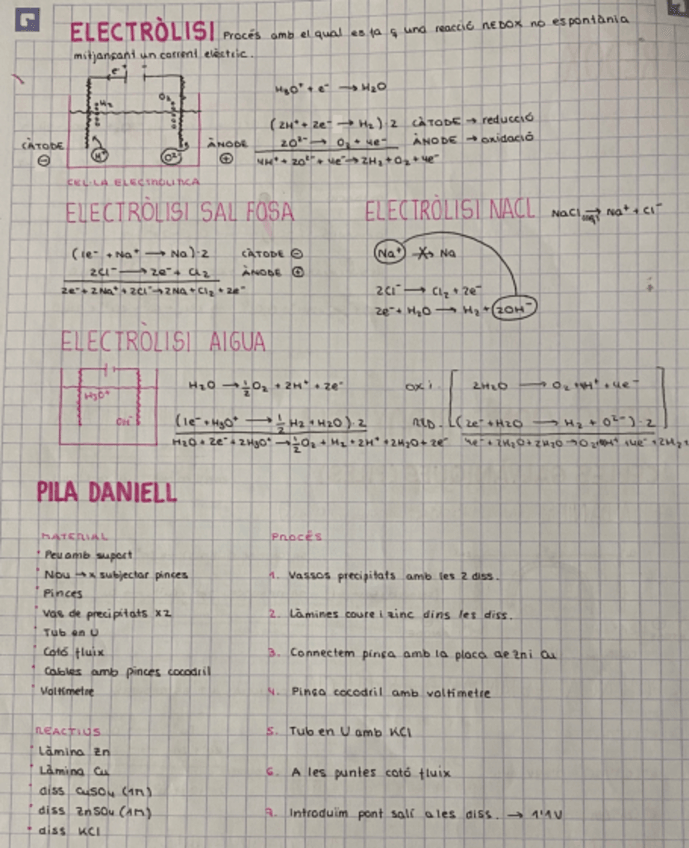 ELECTRÒLISI Procés amb el qual es fa ç una reacció REDOX no espontània
mitjançant un corrent elèctric.
e⁻
H₂ O₂
CÀTODE ⊖ H⁺ O²⁻ ÀNODE ⊕
CEL·LA ELECTROLÍTICA
H₃O⁺ + e⁻ → H₂O
(2H⁺ + 2e⁻ → H₂)·2 CÀTODE → reducció
2O²⁻ → O₂ + 4e⁻ ÀNODE → oxidació
4H⁺ + 2O²⁻ + 4e⁻ → 2H₂ + O₂ + 4e⁻
ELECTRÒLISI SAL FOSA
(1e⁻ + Na⁺ → Na)·2 CÀTODE ⊖
2Cl⁻ → 2e⁻ + Cl₂ ÀNODE ⊕
2e⁻ + 2Na⁺ + 2Cl⁻ → 2Na + Cl₂ + 2e⁻
ELECTRÒLISI NACL NaCl → Na⁺ + Cl⁻
Na⁺ → Na
2Cl⁻ → Cl₂ + 2e⁻
2e⁻ + H₂O → H₂ + 2OH⁻
ELECTRÒLISI AIGUA
H₃O⁺
OH⁻
H₂O → ½O₂ + 2H⁺ + 2e⁻
(1e⁻ + H₃O⁺ → ½H₂ + H₂O)·2
H₂O + 2e⁻ + 2H₃O⁺ → ½O₂ + H₂ + 2H⁺ + 2H₂O + 2e⁻
oxi. 2H₂O → O₂ + 4H⁺ + 4e⁻
RED. (2e⁻ + H₂O → H₂ + O²⁻)·2
4e⁻ + 2H₂O + 2H₂O → O₂ + 4H⁺ + 4e⁻ + 2H₂ +
PILA DANIELL
MATERIAL
· Peu amb suport
· Nou → x subjectar pinces
· Pinces
· Vas de precipitats x2
· Tub en U
· Cotó fluix
· Cables amb pinces cocodril
· Voltímetre
REACTIUS
· Làmina Zn
· Làmina Cu
· diss CuSO₄ (1M)
· diss ZnSO₄ (1M)
· diss KCl
Procés
1. Vassos precipitats amb les 2 diss.
2. Làmines coure i zinc dins les diss.
3. Connectem pinça amb la placa de Zn i Cu
4. Pinça cocodril amb voltímetre
5. Tub en U amb KCl
6. A les puntes cotó fluix
7. Introduïm pont salí a les diss. → 1'1V